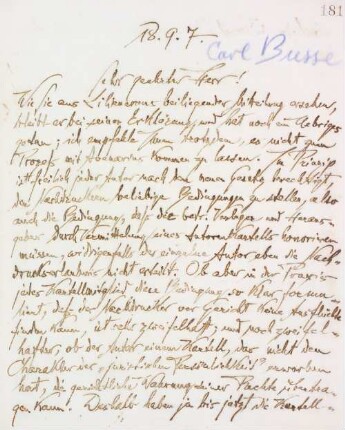 181
18.9.7
Carl Busse
Sehr geehrter Herr!
Wie Sie aus Liliencrons beiliegender Mitteilung ersehen,
bleibt er bei seiner Erklärung und hat noch ein Uebriges
getan; ich empfehle Ihnen trotzdem, es nicht zum
Prozeß mit kommen zu lassen. Im Prinzip
ist freilich jeder Autor nach dem neuen Gesetz berechtigt
den Nachdruckern beliebige Bedingungen zu stellen, also
auch die Bedingung, daß die betr. Verleger und Heraus-
geber durch Vermittelung eines Autoren-Kartells honorieren
müssen, widrigenfalls der einzelne Autor eben die Nach-
druckserlaubnis nicht erteilt. Ob aber in der Praxis
jedes Kartellmitglied diese Bedingung so klar formu-
liert, daß der Nachdrucker vor Gericht keine Ausflüchte
finden kann, ist sehr zweifelhaft; und noch zweifel-
hafter, ob der Autor einem Kartell, das nicht den
Charakter der „juristischen Persönlichkeit" erworben
hat, die gerichtliche Wahrung seiner Rechte übertra-
gen kann. Deshalb haben ja bis jetzt die Kartell-